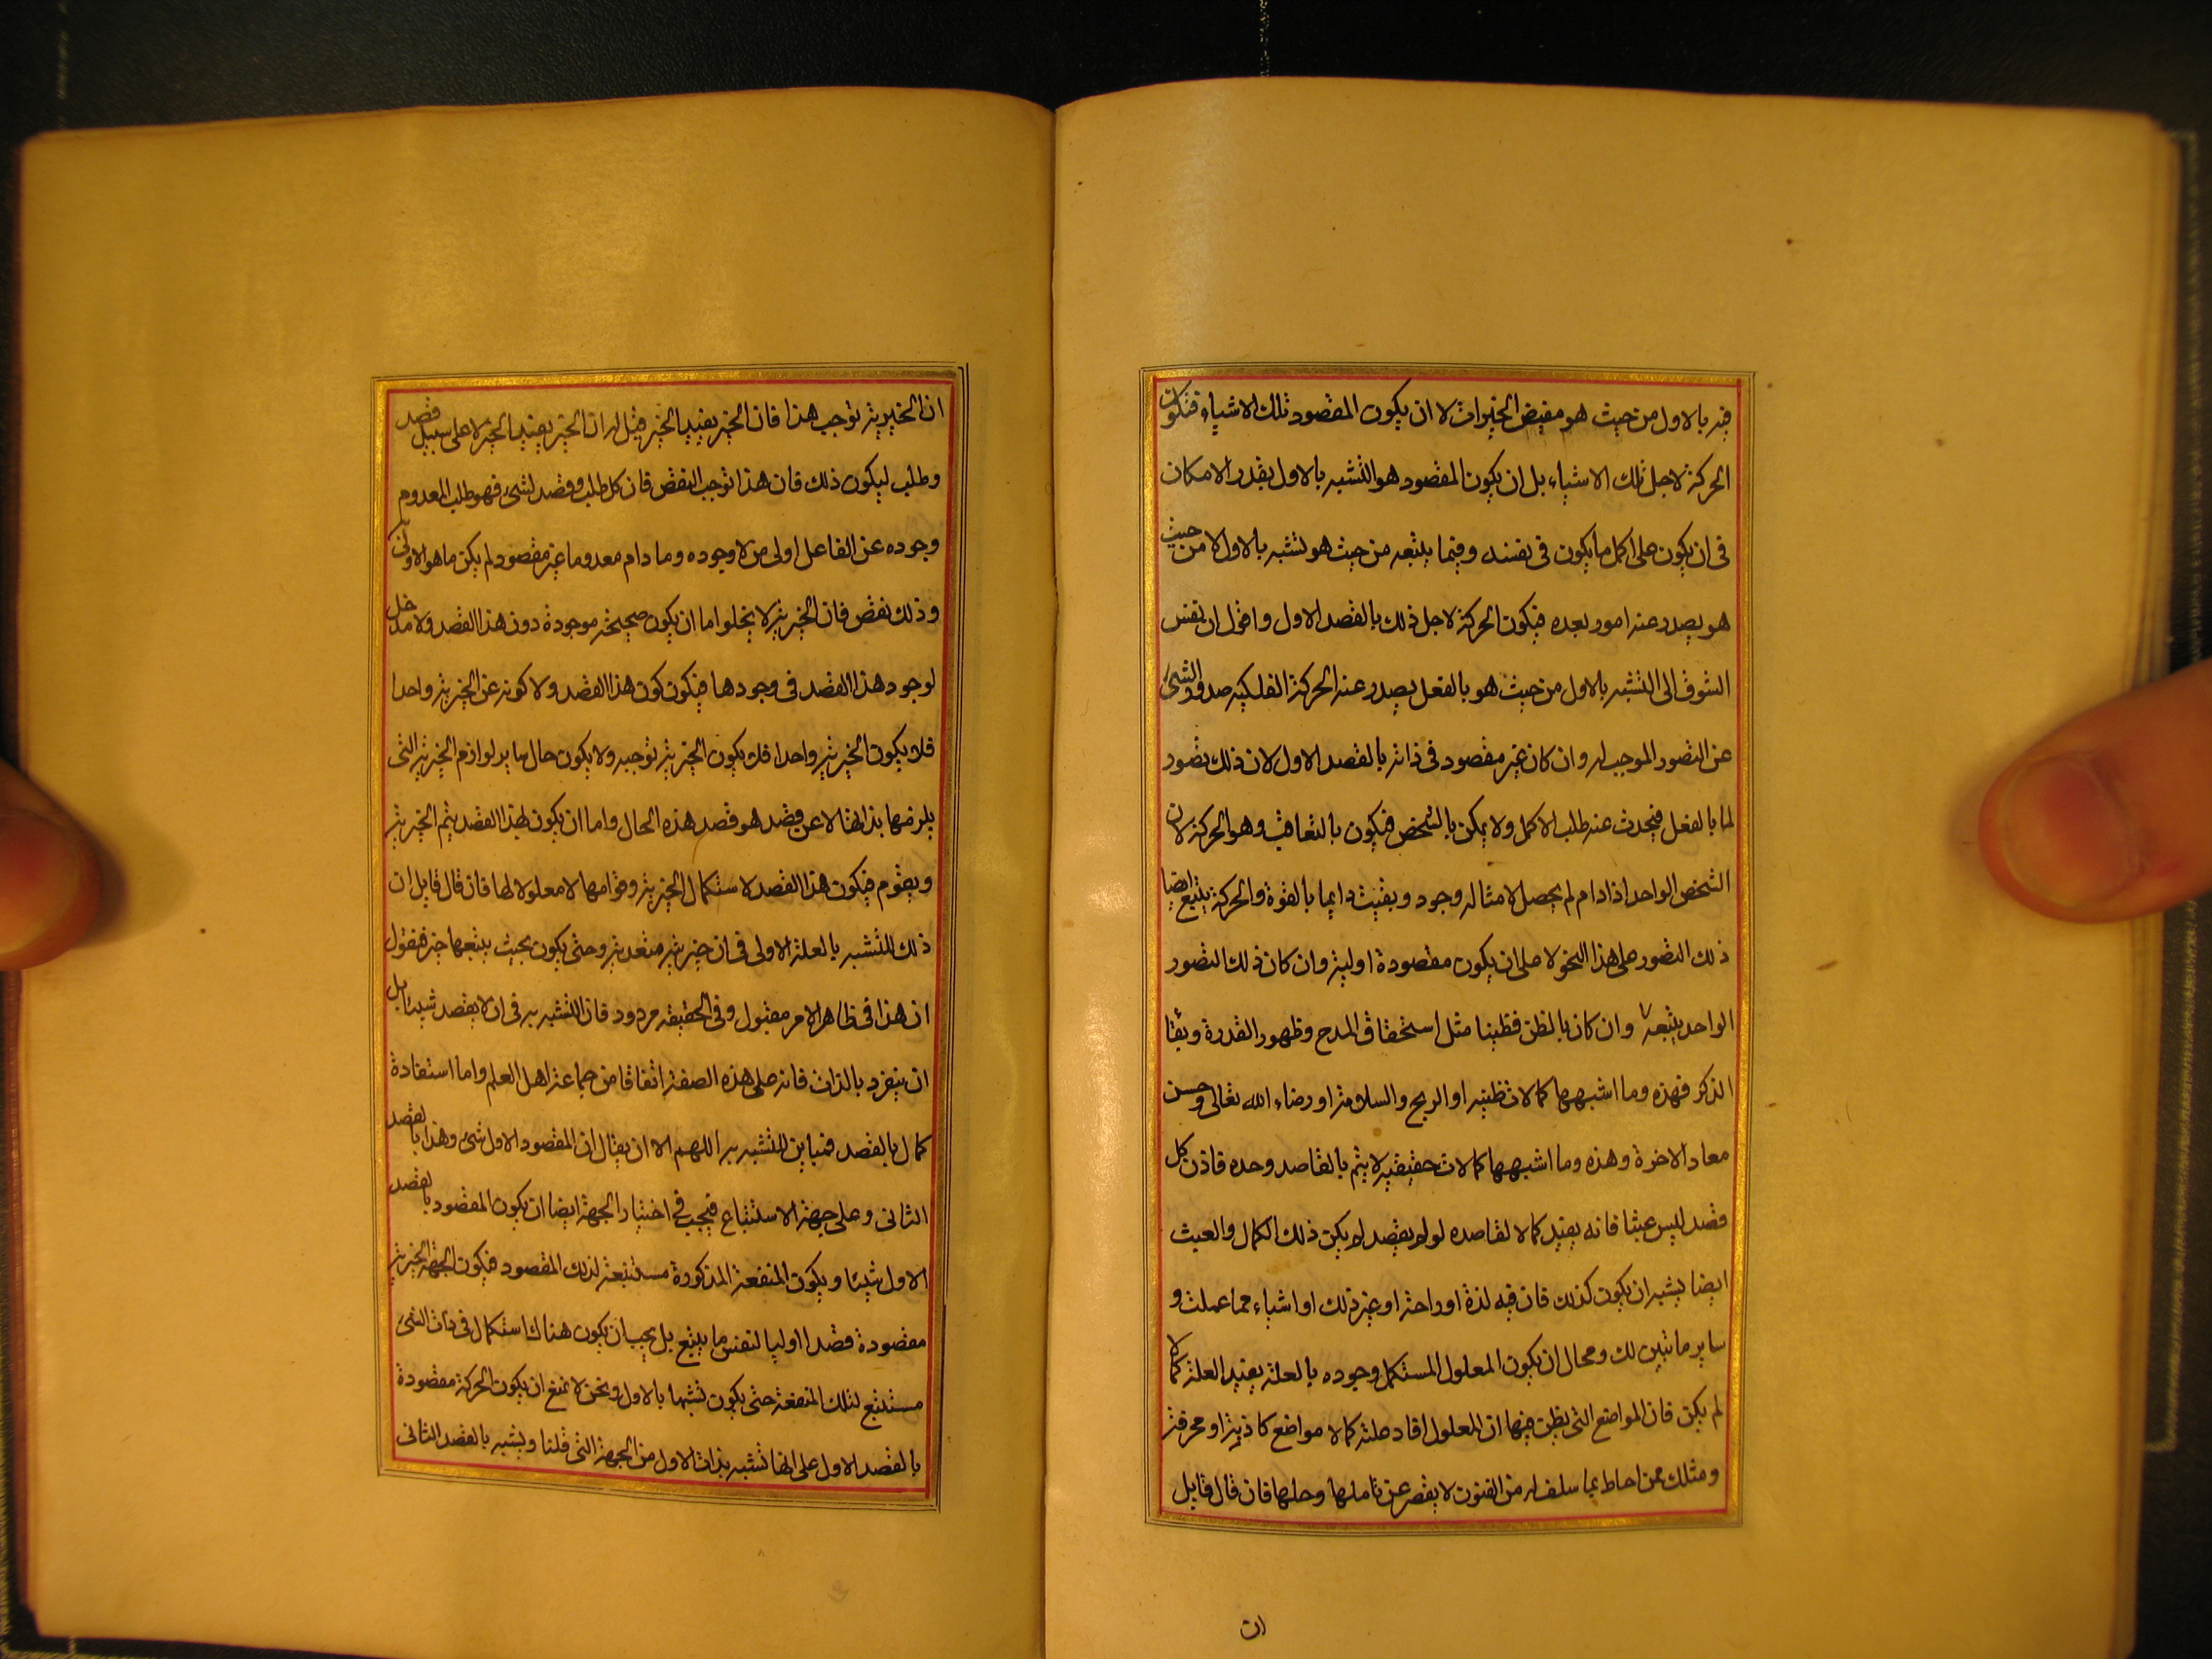 فيه بالاول من حيث هو مفيض الخيرات لا ان يكون المقصود تلك الاشياء فتكون
الحركة لاجل تلك الاشياء بل ان يكون المقصود هو التشبه بالاول بقدر الامكان
فى ان يكون على اكمل ما يكون فى نفسه وفيما يتبعه من حيث هو تشبه بالاول لا من حيث
هو يصدر عنه امور بعده فيكون الحركة لاجل ذلك بالقصد الاول واقول ان نفس
الشوق الى التشبه بالاول من حيث هو بالفعل يصدر عنه الحركة الفلكيه صدور الشىء
عن التصور الموجب له وان كان غير مقصود فى ذاته بالقصد الاول لان ذلك تصور
لما بالفعل فيحدث عنه طلب الاكمل ولا يمكن بالشخص فيكون بالتعاقب وهو الحركة لان
الشخص الواحد اذا دام لم يحصل لامثاله وجود وبقيت دايما بالقوة والحركة يتبع ايضا
ذلك التصور على هذا النحو لا على ان يكون مقصودة اولية وان كان ذلك التصور
الواحد يتبعه وان كان بالظن فظنيا مثل استحقاق المدح وظهور القدرة وبقا
الذكر فهذه وما اشبهها كمالات ظنيه او الربح والسلامة او رضاء الله تعالى وحسن
معاد الاخرة وهذه وما اشبهها كمالات حقيقيه لا يتم بالقاصد وحده فاذن كل
قصد ليس عبثا فانه يفيد كمالا لقاصده لو لم يقصد لم يكن ذلك الكمال والعبث
ايضا يشبه ان يكون كذلك فان فيه لذة او راحة او غير ذلك او اشياء مما عملت و
ساير ما تبين لك ومحال ان يكون المعلول المستكمل وجوده بالعلة يفيد العلة كمالا
لم يكن فان المواضع التى يظن فيها ان المعلول افاد علته كمالا مواضع كاذبة او محرفة
ومثلك ممن احاط بما سلف له من الفنون لا يقصر عن تاملها وحلها فان قال قايل
ان
ان الخيرية توجب هذا فان الخير يفيد الخير قيل له ان الخير يفيد الخير لا على سبيل قصد
وطلب ليكون ذلك فان هذا توجب النقص فان كل طلب وقصد لشىء فهو طلب المعدوم
وجوده عن الفاعل اولى من لا وجوده وما دام معدوما غير مقصود لم يكن ما هو الاولى
وذلك نقص فان الخيرية لا يخلوا اما ان يكون صحيحة موجودة دون هذا القصد ولا مدخل
لوجود هذا القصد فى وجودها فيكون كون هذا القصد ولا كونه عن الخيرية واحدا
فلا يكون الخيرية واحدا فلا يكون الخيرية توجبه ولا يكون حال ساير لوازم الخيرية التى
يلزمها بذاتها لا عن قصد هو قصد هذه الحال واما ان يكون بهذا القصد يتم الخيرية
ويقوم فيكون هذا القصد لاستكمال الخيرية وقوامها لا معلولا لها فان قال قايل ان
ذلك للتشبه بالعلة الاولى فى ان خيريته متعدية وحتى يكون بحيث يتبعها خير فنقول
ان هذا فى ظاهر الامر مقبول وفى الحقيقه مردود فان التشبه به فى ان لا يقصد شيئا بل
ان ينفرد بالذات فانه على هذه الصفة اتفاقا من جماعة اهل العلم واما استفادة
كمال بالقصد فمباين للتشبه به اللهم الا ان يقال ان المقصود الاول شىء وهذا بالقصد
الثانى وعلى جهة الاستتباع فيجب فى اختيار الجهة ايضا ان يكون المقصود بالقصد
الاول شيئا ويكون المنفعة المذكورة مستتبعة لذلك المقصود فيكون الجهة الخيرية
مقصودة قصدا اوليا لنفس ما يتبع بل يجب ان يكون هناك استكمال فى ذات الشىء
مستتبع لتلك المنفعة حتى يكون تشبها بالاول ونحن لا نمنع ان يكون الحركة مقصودة
بالقصد الاول على انها تشبه بذات الاول من الجهة التى قلنا ويشبه بالقصد الثانى